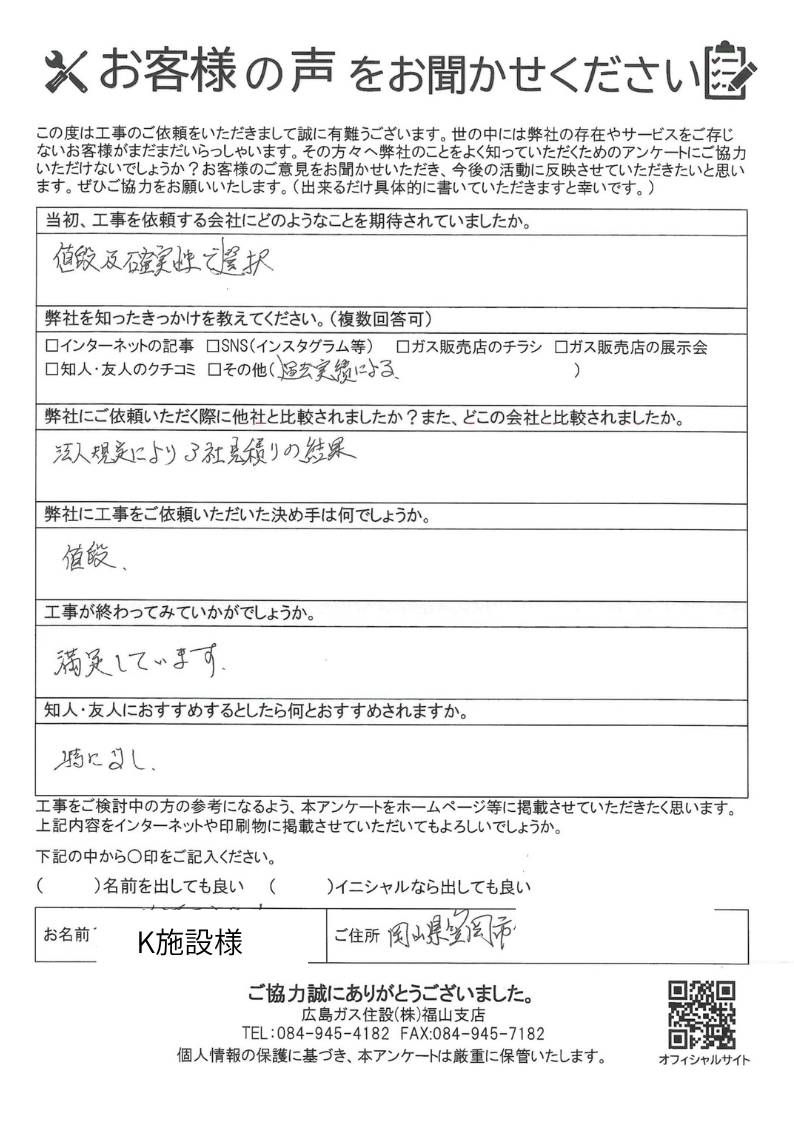 お客様の声をお聞かせください
この度は工事のご依頼をいただきまして誠に有難うございます。世の中には弊社の存在やサービスをご存じ
ないお客様がまだまだいらっしゃいます。その方々へ弊社のことをよく知っていただくためのアンケートにご協力
いただけないでしょうか？お客様のご意見をお聞かせいただき、今後の活動に反映させていただきたいと思い
ます。ぜひご協力をお願いいたします。（出来るだけ具体的に書いていただきますと幸いです。）
当初、工事を依頼する会社にどのようなことを期待されていましたか。
値段及確実性で選択
弊社を知ったきっかけを教えてください。（複数回答可）
□インターネットの記事 □SNS（インスタグラム等） □ガス販売店のチラシ □ガス販売店の展示会
□知人・友人のクチコミ □その他（過去実績による、 ）
弊社にご依頼いただく際に他社と比較されましたか？また、どこの会社と比較されましたか。
法人規定により3社見積りの結果
弊社に工事をご依頼いただいた決め手は何でしょうか。
値段、
工事が終わってみていかがでしょうか。
満足しています。
知人・友人におすすめするとしたら何とおすすめされますか。
特になし、
工事をご検討中の方の参考になるよう、本アンケートをホームページ等に掲載させていただきたく思います。
上記内容をインターネットや印刷物に掲載させていただいてもよろしいでしょうか。
下記の中から〇印をご記入ください。
（ ）名前を出しても良い （ ）イニシャルなら出しても良い
お名前 K施設様 ご住所 岡山県笠岡市
ご協力誠にありがとうございました。
広島ガス住設(株)福山支店
TEL:084-945-4182 FAX:084-945-7182
個人情報の保護に基づき、本アンケートは厳重に保管いたします。
オフィシャルサイト